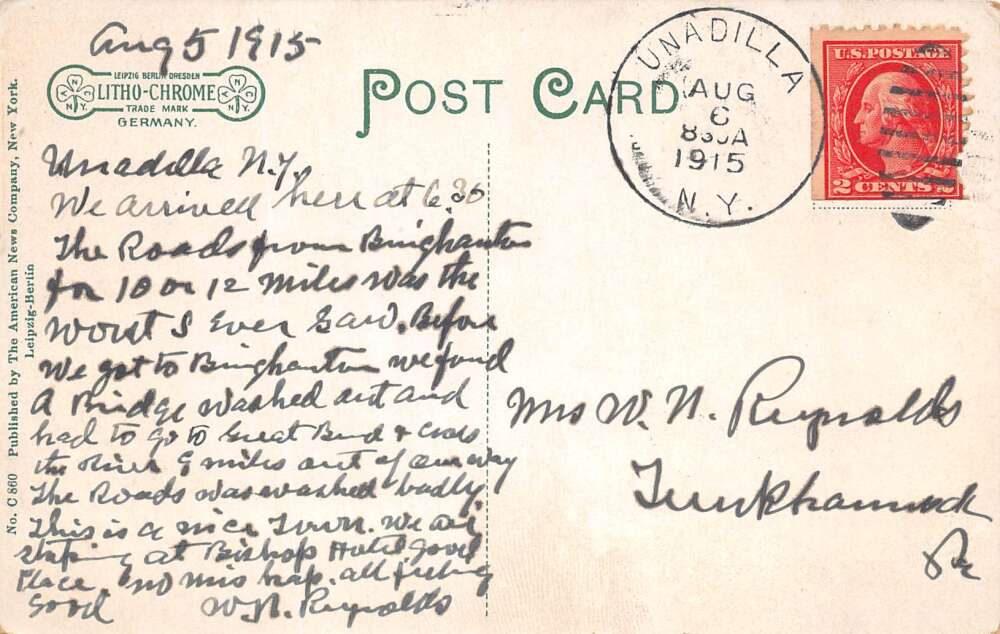 Aug 5 1915
LEIPZIG BERLIN DRESDEN
LITHO-CHROME
TRADE MARK
GERMANY.
N.Y.
A.N.C.
N.Y.
A.N.C.
POST CARD
UNADILLA
AUG
6
830A
1915
N.Y.
U.S. POSTAGE
2 CENTS 2
No. C 860 Published by The American News Company, New York.
Leipzig-Berlin
Unadilla N.Y.
We arrived here at 6.30
The Roads from Binghamton
for 10 or 12 miles was the
worst I Ever Saw. Before
We got to Binghamton we found
A Bridge washed out and
had to go to Great Bend & cross
the River 9 miles out of our way
The Roads was washed badly
This is a nice Town. We are
stoping at Bishop Hotel. Good
Place. no mis hap. all feeling
Good W.N. Reynolds
Mrs W. N. Reynolds
Tunkhannock
Pa